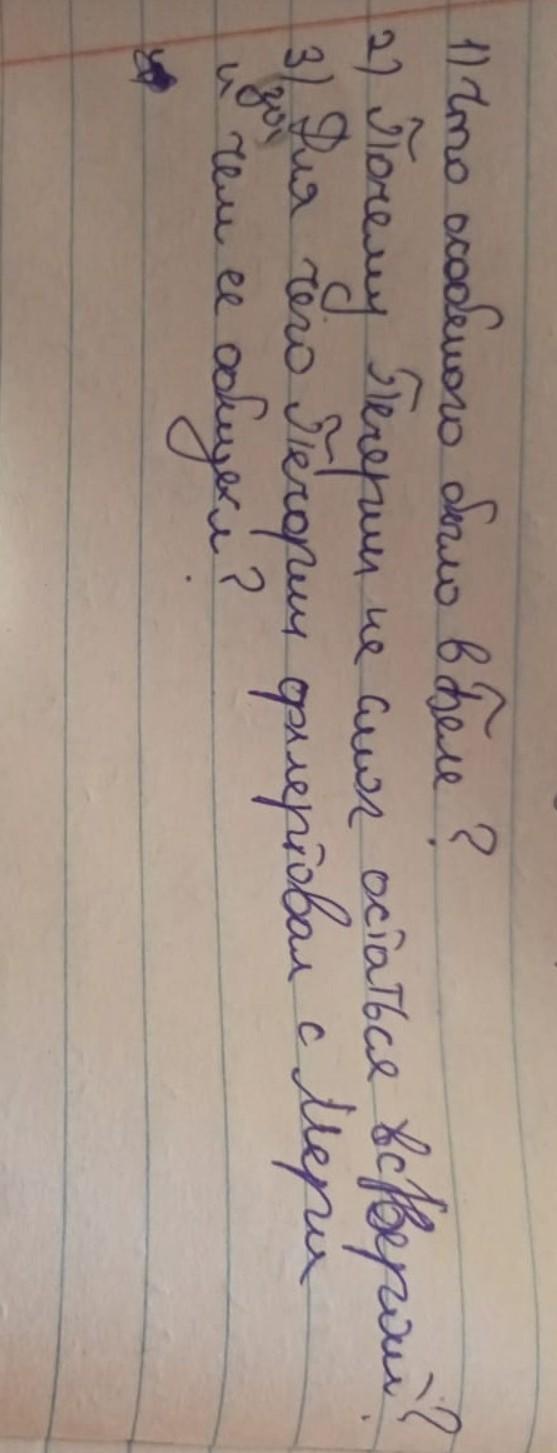 1) Что особеного было в Беле?
2) Почему Печерин не смог остаться с Верай?
3) Для чего Печорин флертовал с Мери
и чем ее обидел?